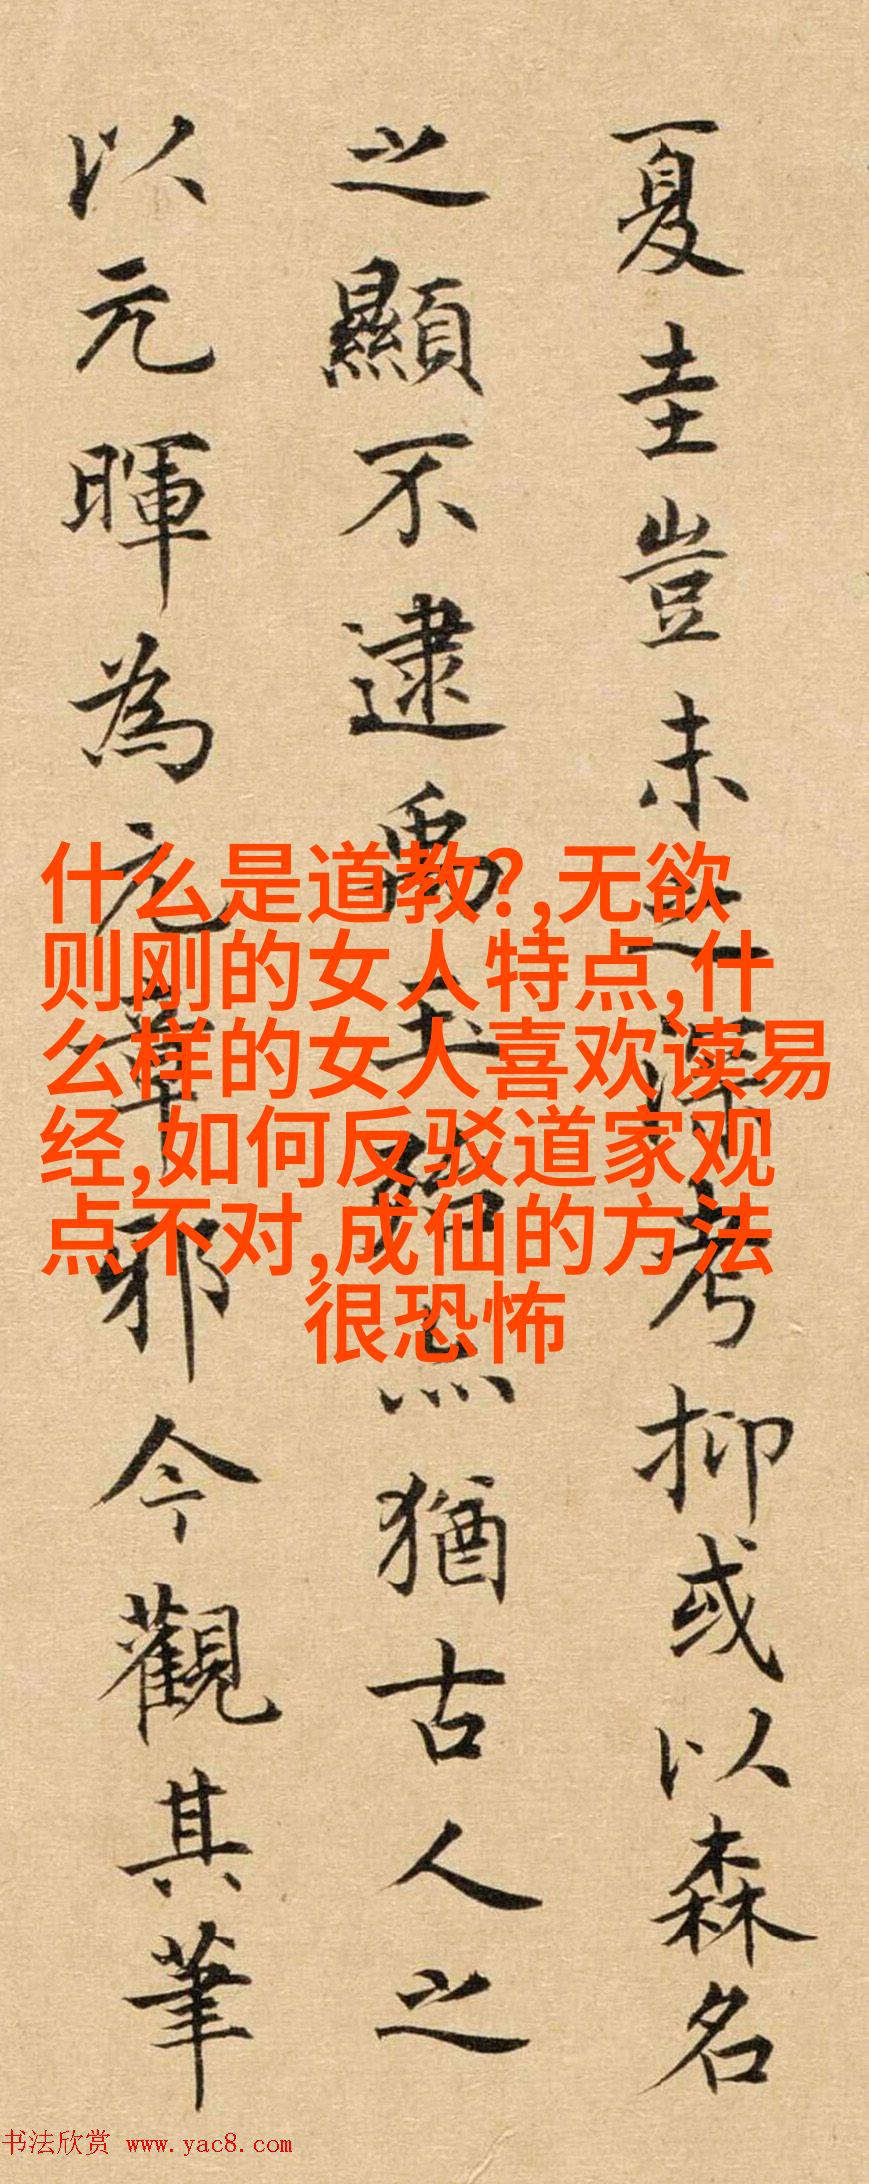 夏圭豈未之深考抑或以森名
之顯不逮禹玉猶古人之
以元暉為元章邪今觀其筆
什么是道教?,无欲
则刚的女人特点,什
么样的女人喜欢读易
经,如何反驳道家观
点不对,成仙的方法
很恐怖
书法欣赏 www.yac8.com